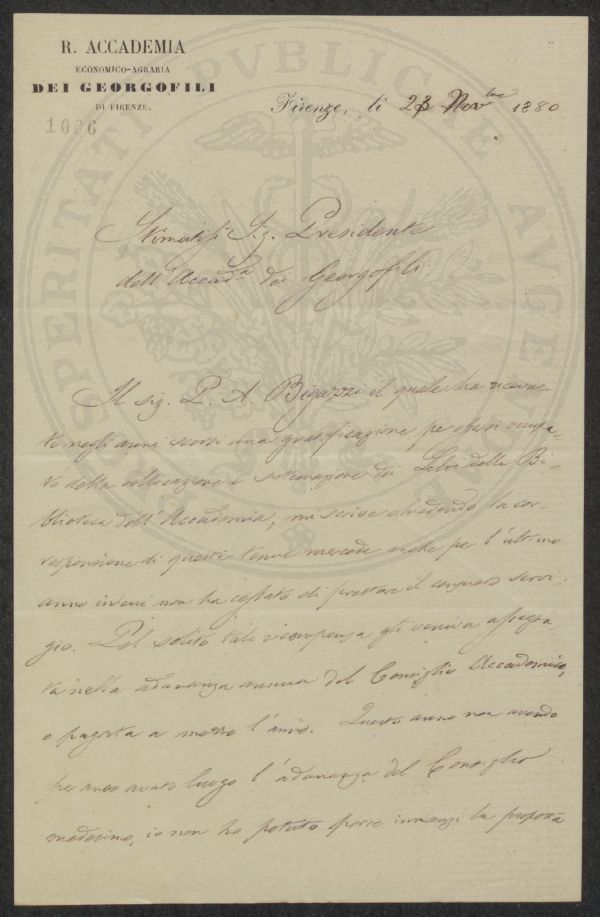 R. ACCADEMIA
ECONOMICO-AGRARIA
DEI GEORGOFILI
DI FIRENZE.
1006
Firenze, li 23 Novbre 1880
PROSPERITATI PVBLICAE AVGENDAE
Stimatiss Sig. Presidente
dell'Accad.a dei Georgofili
Il sig. P. A. Bigazzi il quale ha ricevu-
to negli anni scorsi una gratificazione per essersi occupa-
to della collocazione e sistemazione dei Libri della Bi-
blioteca dell'Accademia, mi scrive chiedendo la cor-
responsione di questa tenue mercede anche per l'ultimo
anno in cui non ha cessato di prestare il consueto servi-
gio. Pel solito tale ricompensa gli veniva assegna-
ta nella adunanza annua del Consiglio Accademico,
e pagata a mezzo l'anno. Questo anno non avendo
per anco avuto luogo l'adunanza del Consiglio
medesimo, io non ho potuto porre innanzi la proposta